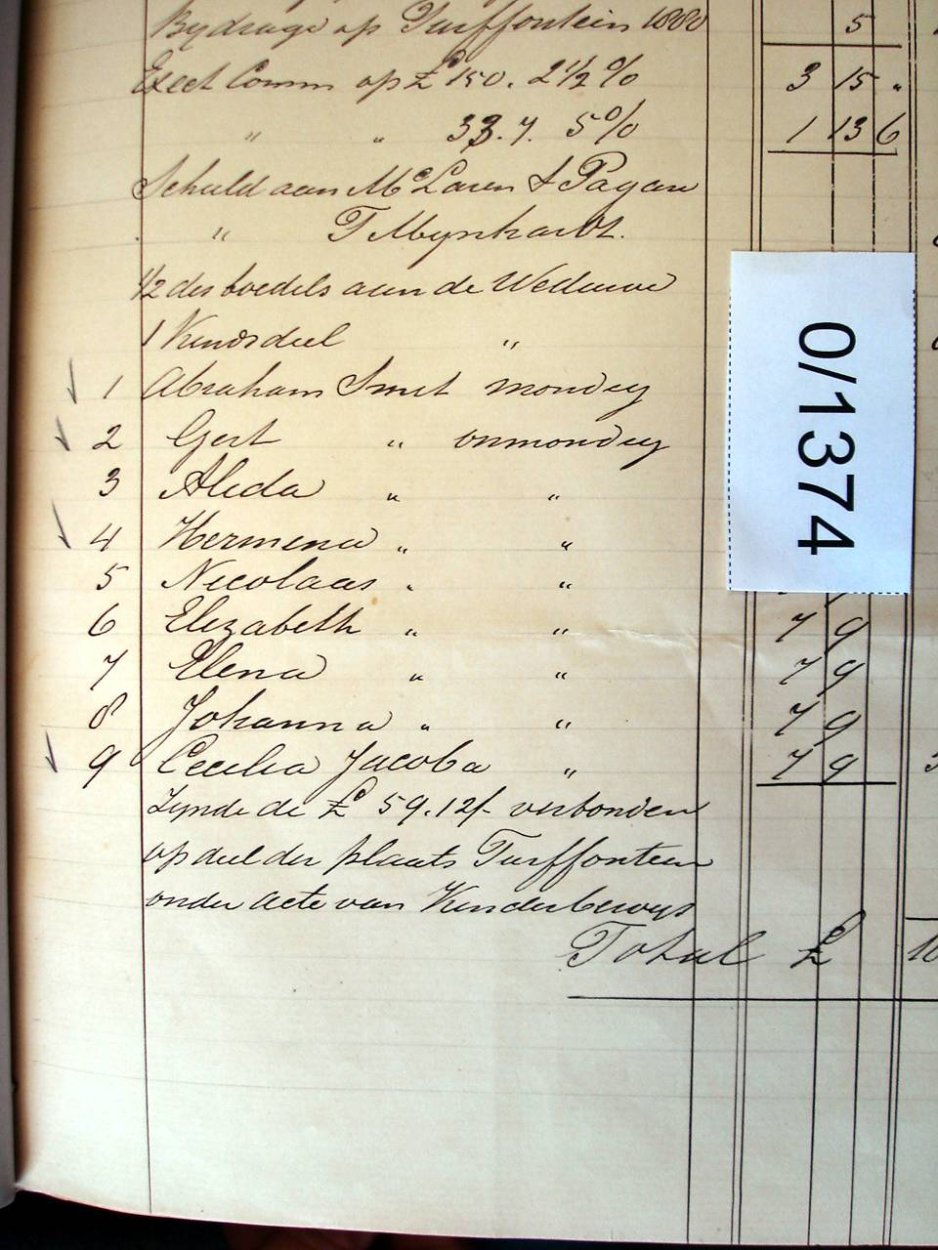 Bydrage op Turffontein 1880 5
Exect Comm op £150. 2 1/2 % 3 15 "
" " 33.7. 5% 1 13 6
Schuld aan McLaren & Pagan
" T Mynhardt.
1/2 des boedels aan de Weduwe
1 Kindsdeel "
1 Abraham Smit mondig
2 Gert " onmondig
3 Aleda " "
4 Hermena " "
5 Nicolaas " "
6 Elizabeth " " 7 9
7 Elena " " 7 9
8 Johanna " " 7 9
9 Cecilia Jacoba " 7 9
Zynde de £59.12/- verbonden
op deel der plaats Turffontein
onder acte van Kinderbewys
Total £ 10
0/1374